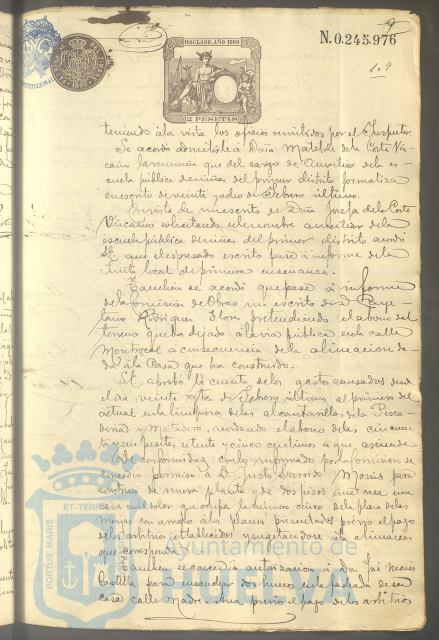 9
N.0.245.976
10ª CLASE. AÑO 1890
2 PESETAS
teniendo á la vista los oficios remitidos por el Inspector.
Se acordó admitirle á Doña Matilde de la Corte Viz-
caino la renuncia que del cargo de Auxiliar de la es-
cuela pública de niñas del primer distrito formaliza
en escrito de veinte y ocho de Febrero último.
de Doña Josefa de la Corte
Vizcaino solicitando se le nombre auxiliar de la
escuela pública de niñas del primer distrito acordó
que el expresado escrito pase á informe de la
Junta local de primera enseñanza.
Tambien se acordó que pase á informe
de la Comision de Obras un escrito de D. Caye-
tano Rodriguez Flores pretendiendo el abono del
terreno que ha dejado á la via pública en la calle
Montrocal á consecuencia de la alineacion da-
da á la casa que ha construido.
Se aprobó la cuenta de los gastos causados desde
el dia veinte de Febrero último al primero del
actual en la limpieza de las alcantarillas de la Pesca-
deria y Matadero, acordando el abono de las cincuen-
ta y seis pesetas setenta y cinco centimos á que asciende
De conformidad con lo informado por la Comision se
concedió permiso á D. Justo Garrido para
construir de nueva planta y de dos pisos una
casa en el solar que ocupa la número cinco de la plaza de las
Monjas con arreglo á los planos presentados previo el pago
de los arbitrios establecidos y sujetandose á la alineacion
que corresponda.
Tambien se concedió autorizacion á Don José
Castilla para ensanchar dos huecos en la fachada de su
casa calle previo el pago de los arbitrios
PORTUS MARIS
ET TERRÆ
Ayuntamiento de
HUELVA